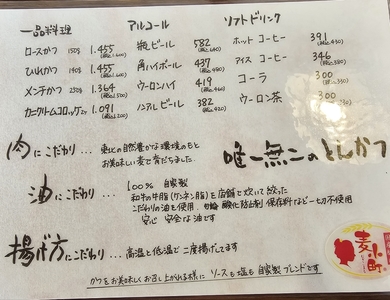 一品料理
ロースかつ 150g 1.455 (税込1.600)
ひれかつ 140g 1.455 (税込1.600)
メンチかつ 230g 1.364 (税込1.500)
カニクリームコロッケ 1.091 (税込1.200)
アルコール
瓶ビール 582 (税込640)
角ハイボール 437 (税込480)
ウーロンハイ 419 (税込460)
ノンアルビール 382 (税込420)
ソフトドリンク
ホット コーヒー 391 (税込430)
アイス コーヒー 346 (税込380)
コーラ 300 (税込330)
ウーロン茶 300 (税込330)
肉にこだわり … 東北の自然豊かな環境のもと
お美味しい麦で育ちました。
唯一無二のとんかつ
油にこだわり … 100% 自家製
和牛の牛脂(ケンネン脂)を店舗で炊いて絞った
こだわりの油を使用 酸化防止剤 保存料など一切不使用
安心 安全な油です
揚げ方にこだわり … 高温と低温で二度揚げしてます
麦小町
かつをお美味しくお召し上がれる様に ソースも塩も自家製ブレンドです